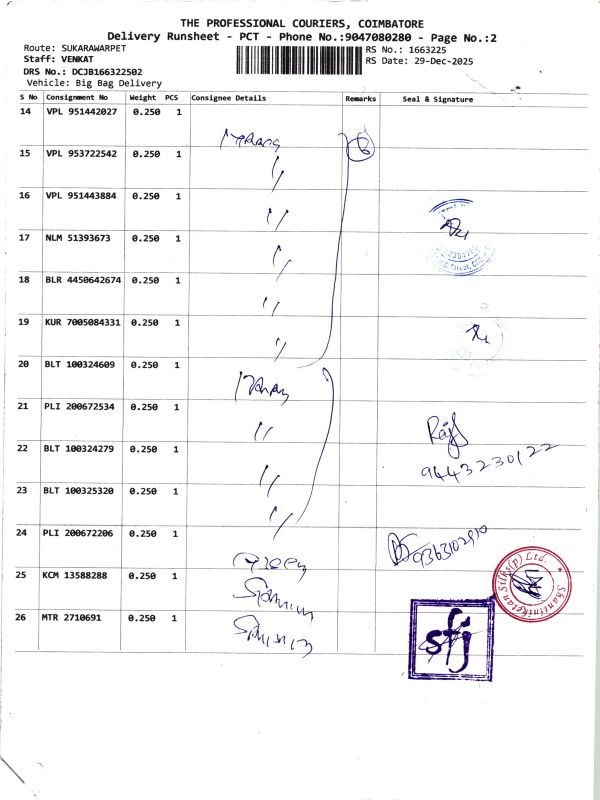 THE PROFESSIONAL COURIERS, COIMBATORE
Delivery Runsheet - PCT - Phone No.:9047080280 - Page No.:2
Route: SUKARAWARPET
RS No.: 1663225
Staff: VENKAT
RS Date: 29-Dec-2025
DRS No.: DCJB166322502
Vehicle: Big Bag Delivery
S No Consignment No Weight PCS Consignee Details Remarks Seal & Signature
14 VPL 951442027 0.250 1
15 VPL 953722542 0.250 1 "
16 VPL 951443884 0.250 1 "
17 NLM 51393673 0.250 1 "
18 BLR 4450642674 0.250 1 "
19 KUR 7005084331 0.250 1 "
20 BLT 100324609 0.250 1
21 PLI 200672534 0.250 1 "
22 BLT 100324279 0.250 1 "
9443230122
23 BLT 100325320 0.250 1 "
24 PLI 200672206 0.250 1
9363102910
25 KCM 13588288 0.250 1
Shantiniketan Silks(p) Ltd
26 MTR 2710691 0.250 1
sfj